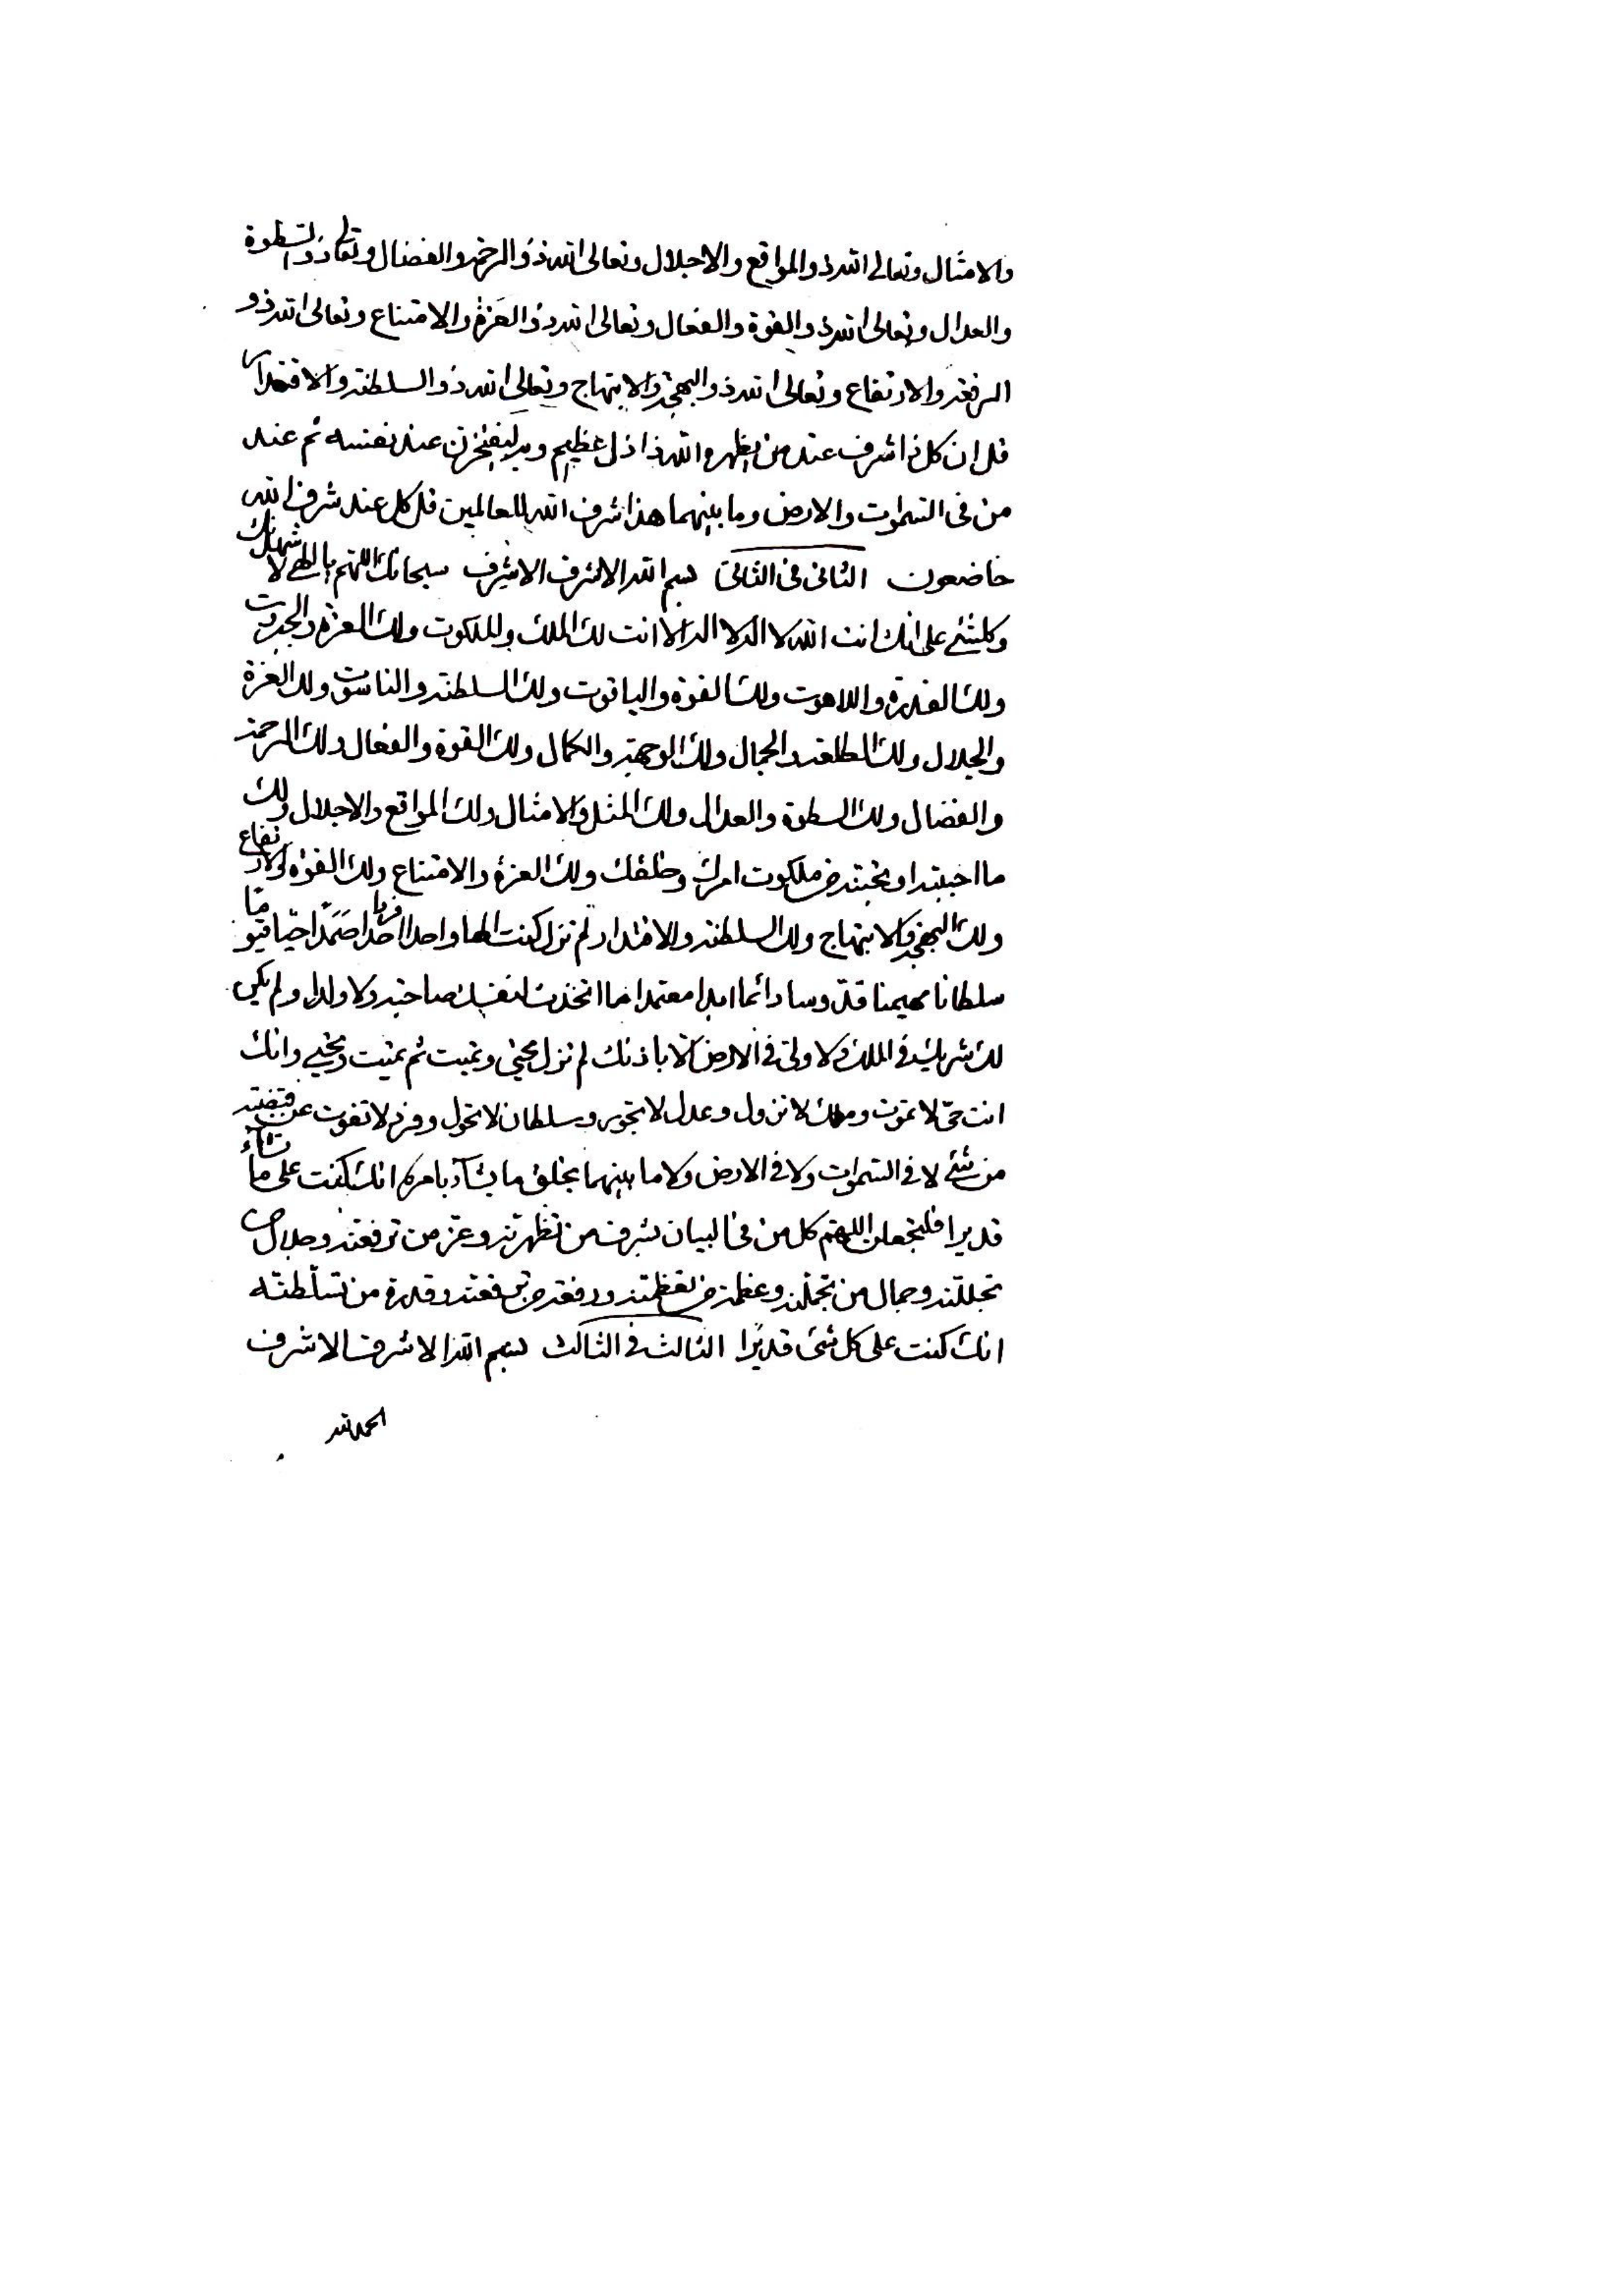 والامثال وتعالى الله ذو المواقع والاجلال وتعالى الله ذو الرحمة والفضال وتعالى ذو السطوة
والعدال وتعالى الله ذو القوة والفعال وتعالى الله ذو العزة والامتناع وتعالى الله ذو
الرفعة والارتفاع وتعالى الله ذو البهجة والابتهاج وتعالى الله ذو السلطنة والاقتدار
قل ان كل ذا شرف عند من يظهره الله ذا ذل عظيم وبه ليفتخرن عند نفسه ثم عند
من في السموات والارض وما بينهما هذا شرف الله للعالمين قل كل عند شرف الله
خاضعون الثاني في الثاني بسم الله الاشرف الاشرف سبحانك اللهم يا الهي لاشهدنك
وكلشئ على انك انت الله لا اله الا انت لك الملك والملكوت ولك العزة والجبروت
ولك القدرة واللاهوت ولك القوة والياقوت ولك السلطنة والناسوت ولك العزة
والجلال ولك الطلعة والجمال ولك الوجهة والكمال ولك القوة والفعال ولك الرحمة
والفضال ولك السطوة والعدال ولك المثل والامثال ولك المواقع والاجلال ولك
ما احببته او تحبنه من ملكوت امرك وخلقك ولك العزة والامتناع ولك القوة والارتفاع
ولك البهجة والابتهاج ولك السلطنة والاقتدار لم تزل كنت الها واحدا احدا فردا صمدا حيا قيوما
سلطانا مهيمنا قدوسا دائما ابدا معتمدا ما اتخذت لنفسك صاحبة ولا ولدا ولم يكن
لك شريك في الملك ولا ولي في الارض الا باذنك لم تزل تحيي وتميت ثم تميت وتحيي وانك
انت حي لا تموت وملك لا تزول وعدل لا تجور وسلطان لا تحول وفرد لا تفوت عن قبضته
من شئ لا في السموات ولا في الارض ولا ما بينهما تخلق ما يشآء بامرك انك كنت على ما تشاء
قديرا فلتجعلن اللهم كل من في البيان شرف من تظهرنه وعز من ترفعنه وجلال من
تجللنه وجمال من تجملنه وعظمة من تعظمنه ورفعة من ترفعنه وقدرة من تسلطنه
انك كنت على كل شئ قديرا الثالث في الثالث بسم الله الاشرف الاشرف
الحمد لله